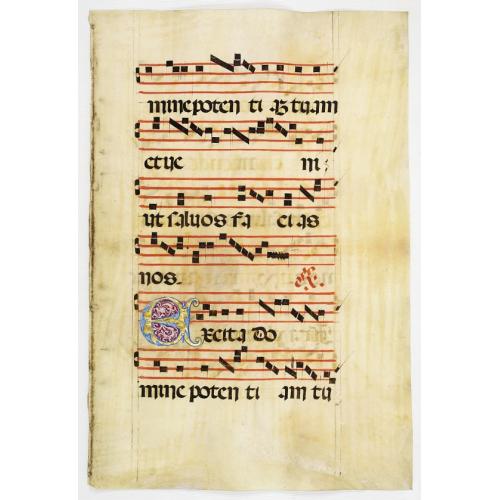 mine poten ti am tuam
et ve ni:
ut salvos fa cias
nos.
Excita Do
mine poten ti am tu